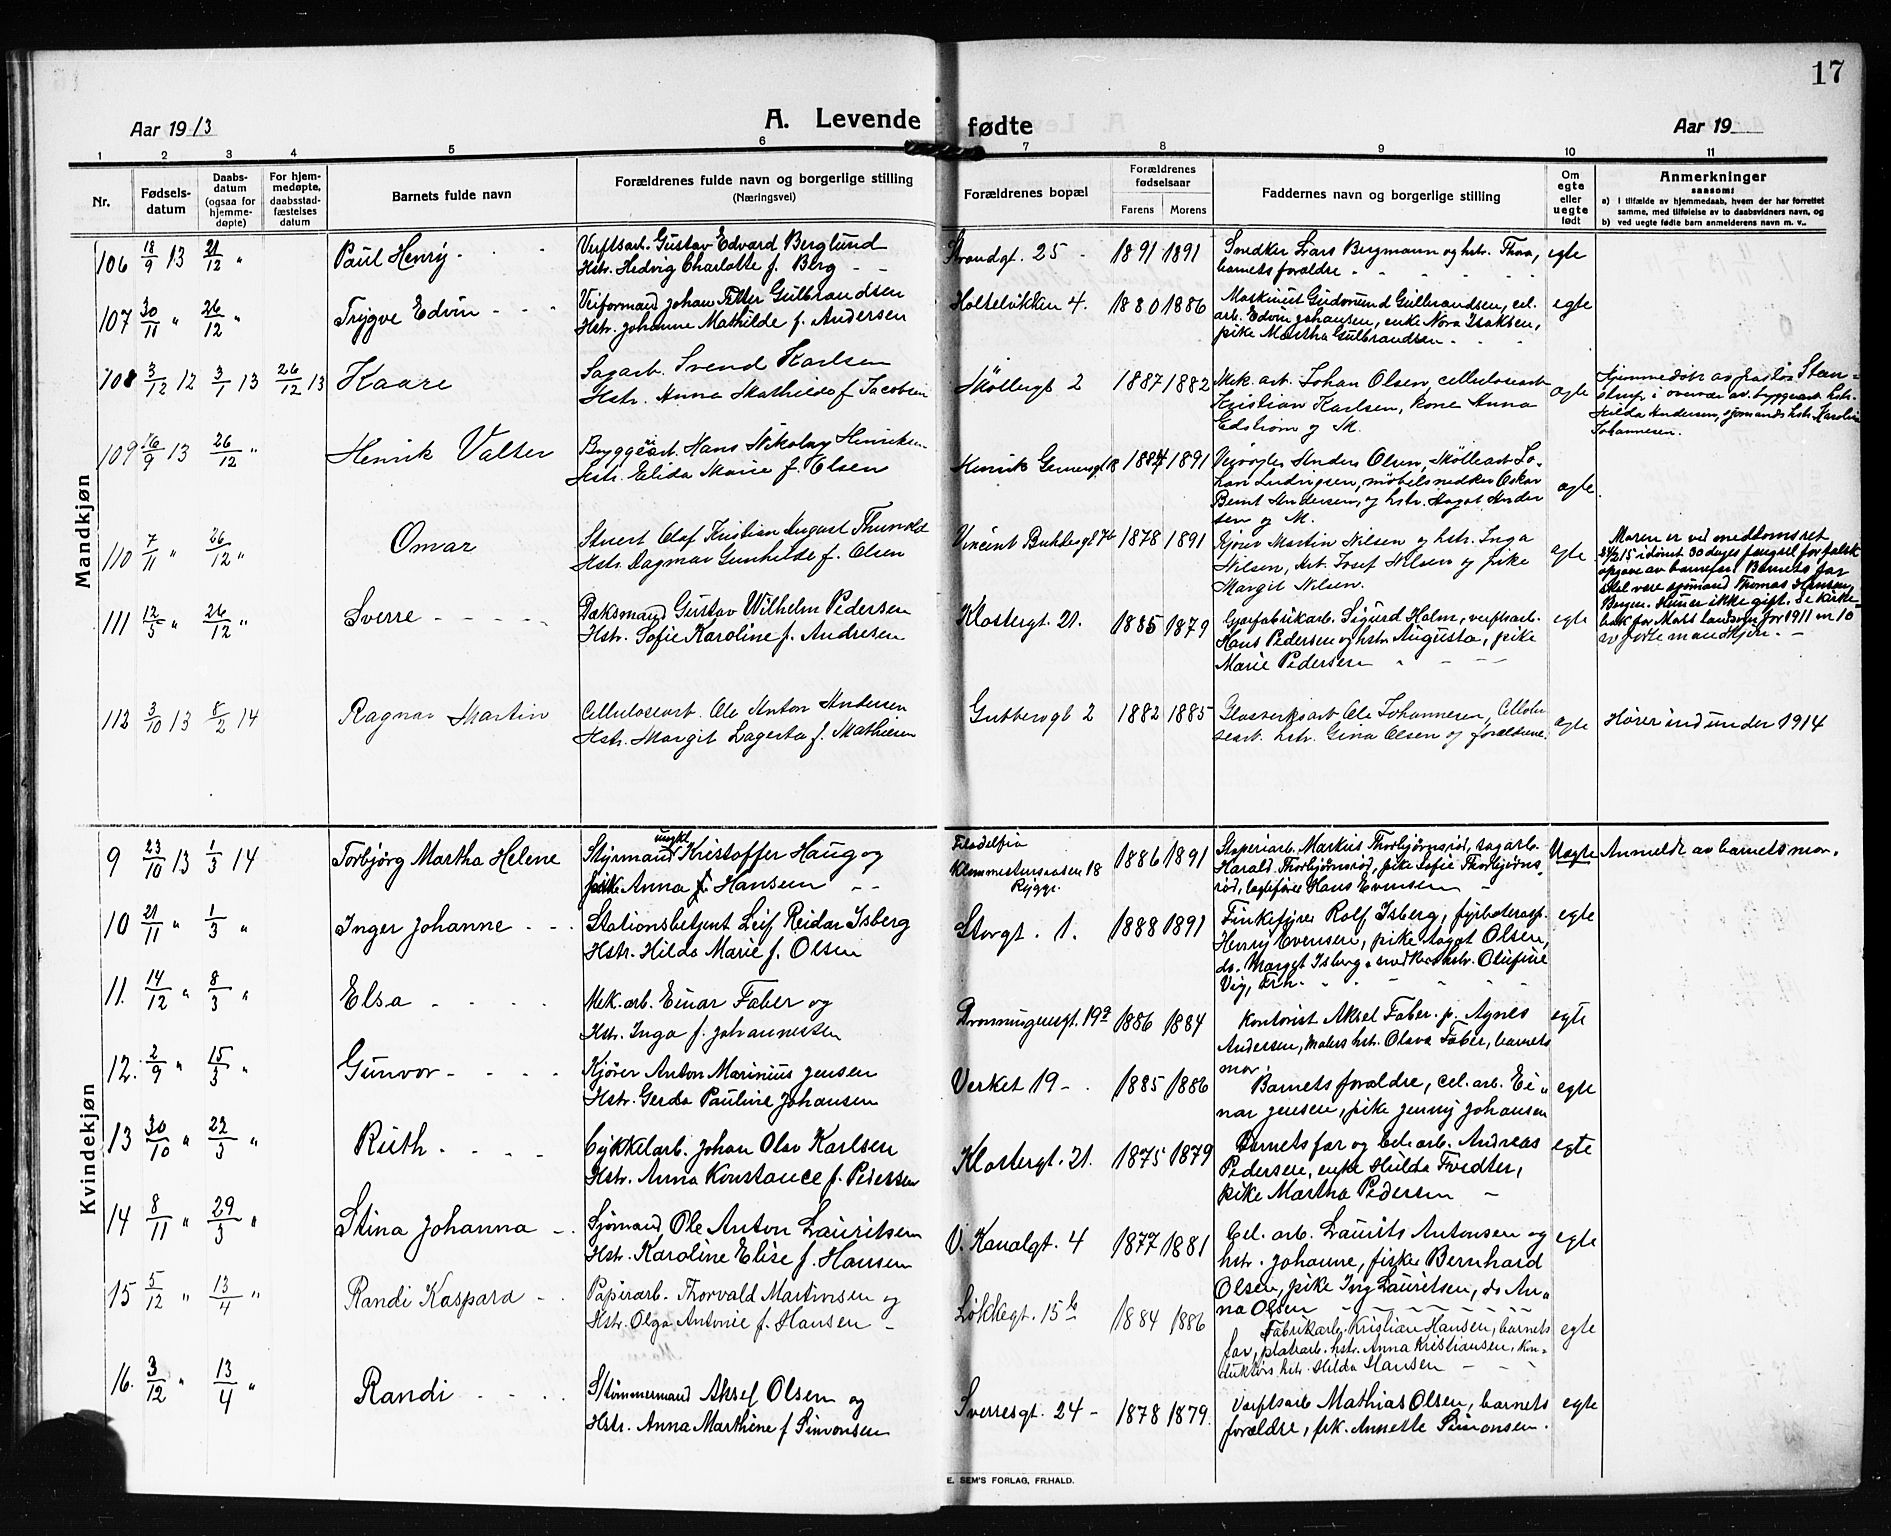 17
Aar 1913
A. Levende fødte
Aar 19
1 2 3 4 5 6 7 8 9 10 11
Nr.
Fødsels-
datum
Daabs-
datum
(ogsaa for
hjemme-
døpte)
For hjem-
medøpte,
daabsstad-
fæstelses
datum
Barnets fulde navn
Forældrenes fulde navn og borgerlige stilling
(Næringsvei)
Forældrenes bopæl
Forældrenes
fødselsaar
Farens Morens
Faddernes navn og borgerlige stilling
Om
egte
eller
uegte
født
Anmerkninger
saasom:
a) I tilfælde av hjemmedaab, hvem der har forrettet
samme, med tilføielse av to daabsvidners navn, og
b) ved uegte fødte barn anmelderens navn m. v..
Mandkjøn
106 18/9 13 21/12 " Paul Henry
Verftsarb. Gustav Edvard Berglund
Hstr. Hedvig Charlotte f. Berg
Strandgt. 25 1891 1891
Snedker Lars Bergmann og hstr. Thora,
barnets forældre
egte
107 30/11 " 26/12 " Trygve Edvin
Veiformand Johan Petter Gulbrandsen
Hstr. Johanne Mathilde f. Andersen
Holtelvikken 4. 1880 1886
Maskinist Gudmund Gulbrandsen, cel.
arb. Edvin Johansen, enke Nora Isaksen,
pike Martha Gulbrandsen
egte
108 3/12 12 3/1 13 26/12 13 Kaare
Sagarb. Svend Karlsen
Hstr. Anna Mathilde f Jacobsen
Møllergt 2 1887 1882
Mek. arb. Johan Olsen, cellulosearb
Kristian Karlsen, kone Anna
Edstrom og M.
egte
Hjemmedøbt av frøken Sten-
strup i overvær av byggearb. hstr.
Hilda Andersen, sjømands hstr. Karoline
Johannesen.
109 16/9 13 26/12 " Henrik Valter
Bryggearb. Hans Nikolay Henriksen
Hstr. Elida Marie f. Olsen
Henrik Gernersgt 1887 1891
Anders Olsen, Møllearb. Jo-
han Ludvigsen, møbelsnedker Oskar
Bernt Andersen, og hstr. Hagot Ander
sen og M.
egte
110 7/11 " 26/12 " Omar
Stuert Olaf Kristian August Thunold
Hstr. Dagmar Gunhilde f. Olsen
Vincent Buddesgt 1878 1891
Kjører Martin Nilsen og hstr. Inga
Nilsen, Arb. Josef Nilsen og pike
Margit Nilsen.
egte
Moren er ved meddomsret
15 idømt 30 dages fængsel for falsk
opgave av barnefar. Barnets far
skal være sjømand Thomas Hansen,
Bergen. Hun er ikke gift. Se kirke-
bok for Moss landsogn for 1911 nr 10
uegte mandkjøn.
111 12/5 " 26/12 " Sverre
Dæksmand Gustav Wilhelm Pedersen
Hstr. Sofie Karoline f. Andresen
Klostergt. 21. 1885 1879
Garfabrikarb. Sigurd Holm, verftsarb.
Hans Pedersen og hstr. Augusta, pike
Marie Pedersen
egte
112 3/10 13 8/2 14 Ragnar Martin
Cellulosearb. Ole Anton Andersen
Hstr. Margit Lagerta f. Mathisen
Gudesgt 2 1882 1885
Glasverksarb. Ole Johannesen, Cellulo
searb. hstr. Gina Olsen og forældrene.
egte
Hører ind under 1914
Kvindekjøn
9 23/10 13 1/3 14 Torbjørg Martha Helene
ungkl
Styrmand Kristoffer Haug og
pike Anna Hansen
Filadelfia
Klommestensaasen 18
Rygge.
1886 1891
Staperiarb. Markus Thorbjørnsrød, sagarb.
Harald Thorbjørnsrød, pike Sofie Thorbjørns
rød, Hans Evensen
Uegte
Anmeldt av barnets mor.
10 21/11 " 1/3 " Inger Johanne
Stationsbetjent Leif Reidar Isberg
Hstr. Hilda Marie f. Olsen
Storgt. 1. 1888 1891
Rolf Isberg, fyrbøteraspt.
Henry Evensen, pike Aagot Olsen,
do. Margot Isberg, snedker hstr. Olufine
Vig, Frh.
egte
11. 14/12 " 8/3 " Elsa
Mek. arb. Einar Faber og
Hstr. Inga f. Johannesen
Dronningensgt. 19a 1886 1884
Kontorist Aksel Faber, p. Agnes
Andersen, Malers hstr. Olava Faber, barnets
mor.
egte
12. 2/9 " 15/3 " Gunvor
Kjører Anton Marinius Jensen
Hstr. Gerda Pauline Johansen
Verket 19 1885 1886
Barnets forældre, cel. arb. Ei-
nar Jensen, pike Jenny Johansen
egte
13 30/10 " 22/3 " Ruth
Cykkelarb. Johan Olav Karlsen
Hstr. Anna Konstance f. Pedersen
Klostergt. 21. 1875 1879
Barnets far og Cel. arb. Andreas
Pedersen, enke Hulda Tvedter,
pike Martha Pedersen
egte
14 8/11 " 29/3 " Stina Johanna
Sjømand Ole Anton Lauritsen
Hstr. Karoline Elise f. Hansen
V. Kanalgt. 4 1877 1881
Cel. arb. Laurits Antonsen og
hstr. Johanne, fisker Bernhard
Olsen, pike Ing Lauritsen, do An-
na Olsen
egte
15 5/12 " 13/4 " Randi Kaspara
Papirarb. Thorvald Martinsen og
Hstr. Olga Antonie f. Hansen
Løkkegt. 15 b 1884 1886
Fabrikarb. Kristian Hansen, barnets
far, platearb. hstr. Anna Kristiansen, kon-
duktørs hstr. Hilda Hansen
egte
16. 3/12 " 13/4 " Randi
Tømmermand Aksel Olsen og
Hstr. Anna Marthine f Simonsen
Sverresgt. 24 1878 1879.
Verftsarb Mathias Olsen, barnets
forældre, frk. Annette Simonsen.
egte
E. SEM'S FORLAG, FR.HALD.